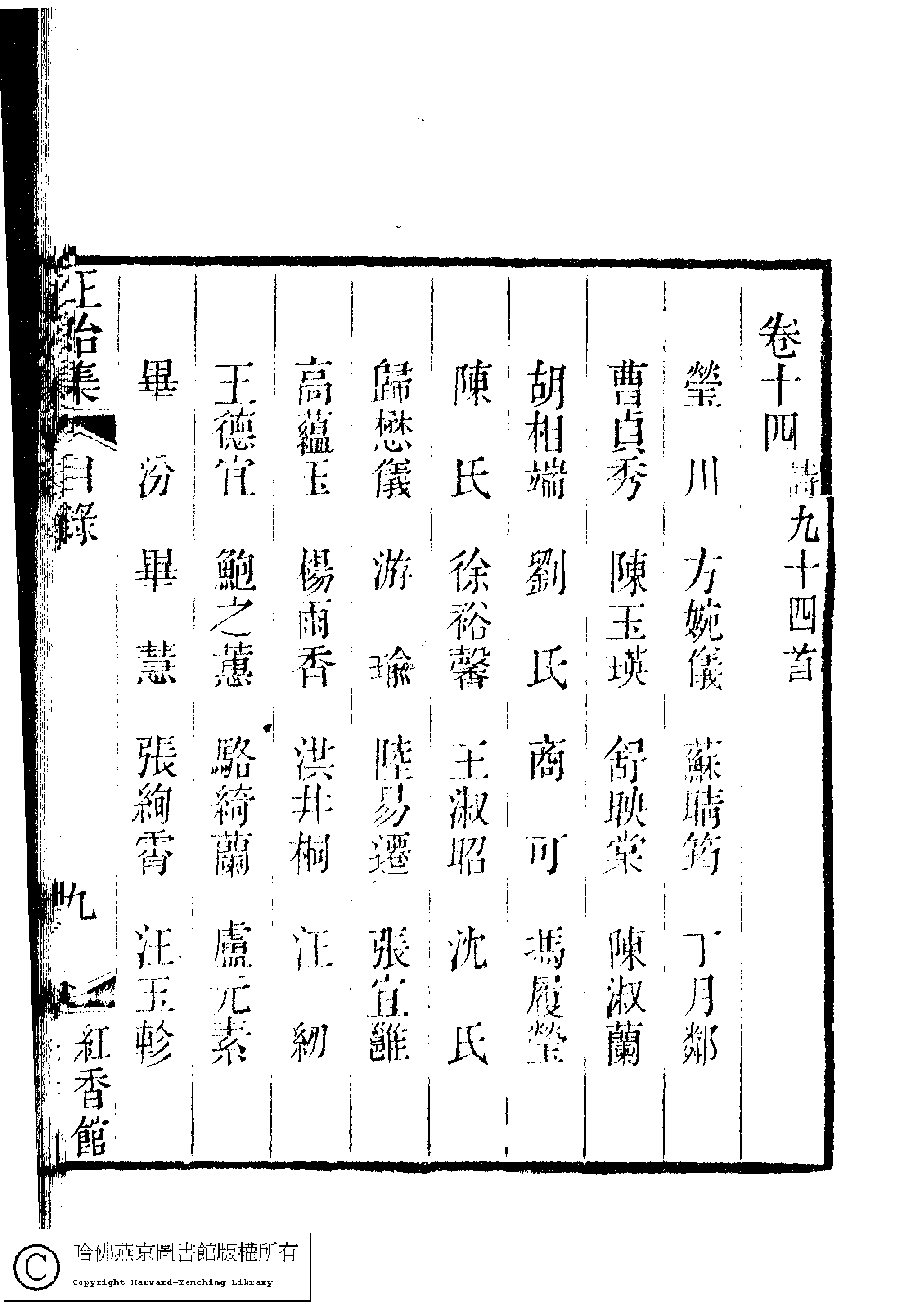 卷十四 詩九十四首
瑩川 方婉儀 蘇晴筠 丁月鄰
曹貞秀 陳玉瑛 舒映棠 陳淑蘭
胡相端 劉氏 商可 瑪履瑩
陳氏 徐裕馨 王淑昭 沈氏
歸懋儀 游瑜 陸易遷 張宜雝
高蘊玉 楊雨香 洪井桐 汪紉
王德宜 鮑之蕙 駱綺蘭 盧元素
畢汾 畢慧 張絢霄 汪玉軫
正始集 目錄 九 紅香館
哈佛燕京圖書館版權所有
Copyright Harvard-Yenching Library